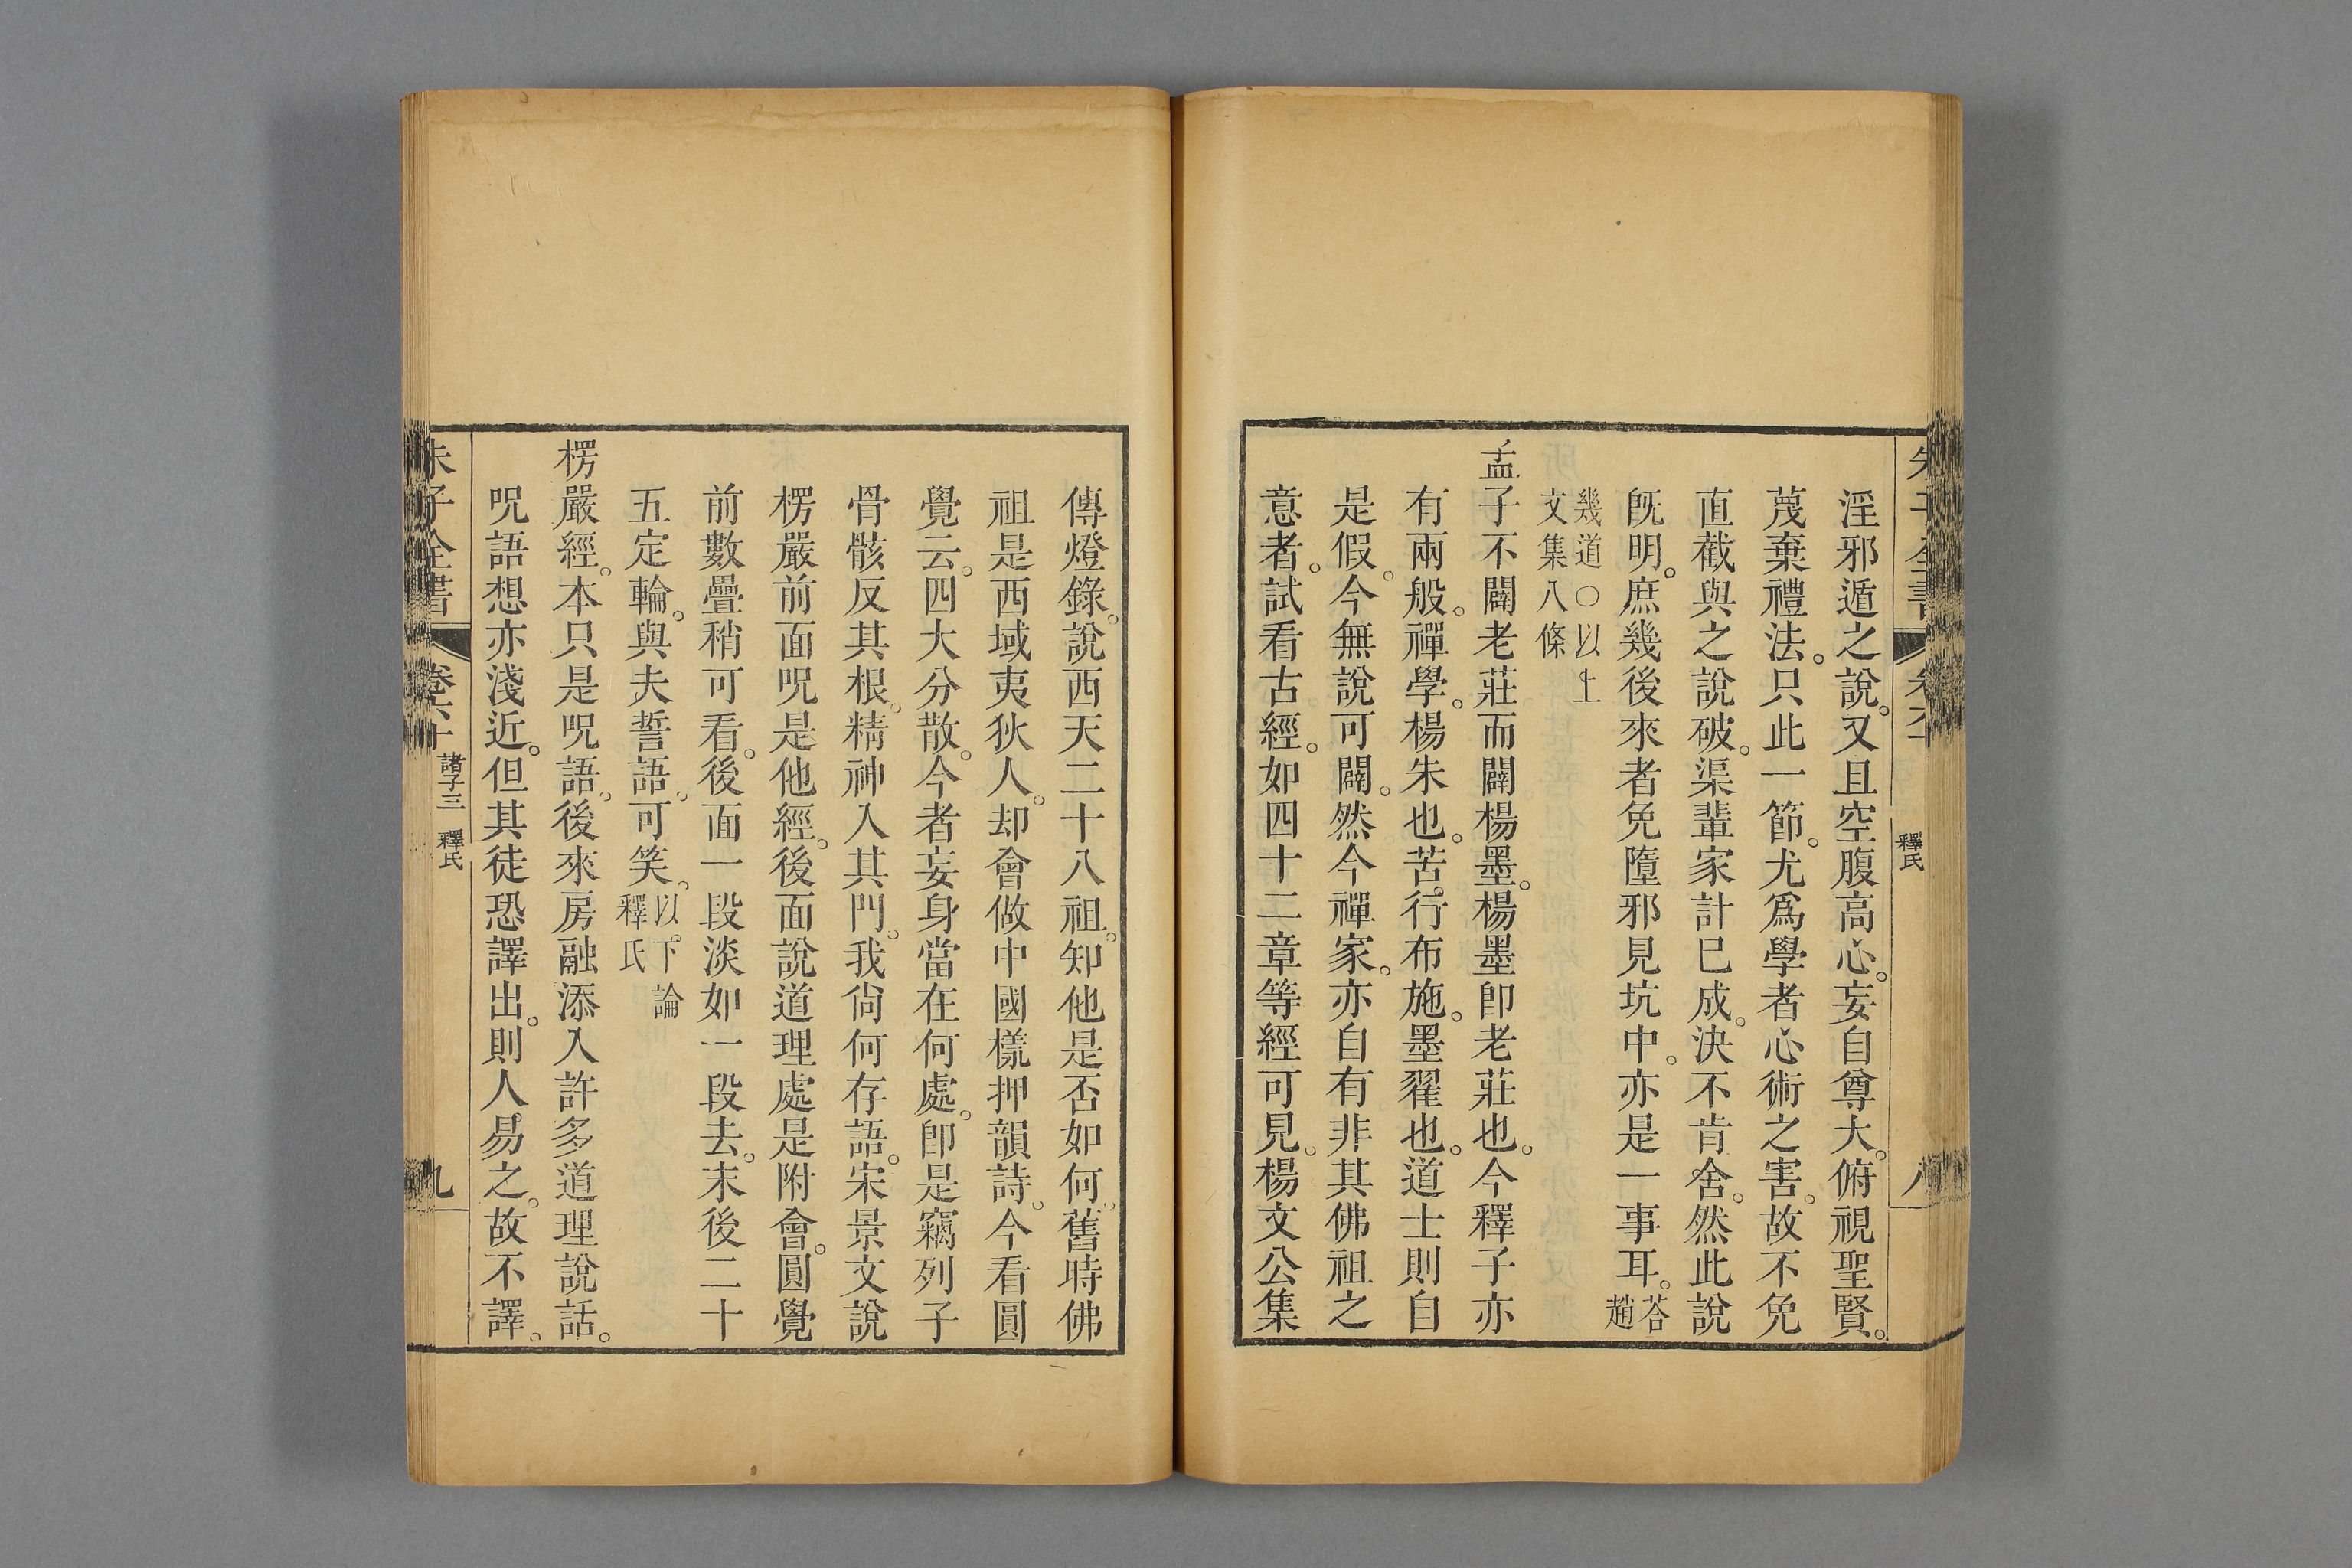 淫邪遁之說。又且空腹高心。妄自尊大。俯視聖賢。
蔑棄禮法。只此一節。尤爲學者心術之害。故不免
直截與之說破。渠輩家計已成。決不肯舍。然此說
旣明。庶幾後來者免墮邪見坑中。亦是一事耳。荅趙
幾道○以上
文集八條
孟子不闢老莊而闢楊墨。楊墨卽老莊也。今釋子亦
有兩般。禪學。楊朱也。苦行布施。墨翟也。道士則自
是假。今無說可闢。然今禪家。亦自有非其佛祖之
意者。試看古經。如四十二章等經可見。楊文公集
傳燈錄。說西天二十八祖。知他是否如何。舊時佛
祖是西域夷狄人。却會做中國樣押韻詩。今看圓
覺云。四大分散。今者妄身當在何處。卽是竊列子
骨骸反其根。精神入其門。我尙何存語。宋景文說
楞嚴前面呪是他經。後面說道理處是附會。圓覺
前數疊稍可看。後面一段淡如一段去。末後二十
五定輪。與夫誓語。可笑。以下論
釋氏
楞嚴經。本只是呪語。後來房融添入許多道理說話。
呪語想亦淺近。但其徒恐譯出。則人易之。故不譯。
朱子全書
卷六十
諸子三 釋氏
九
釋氏
八